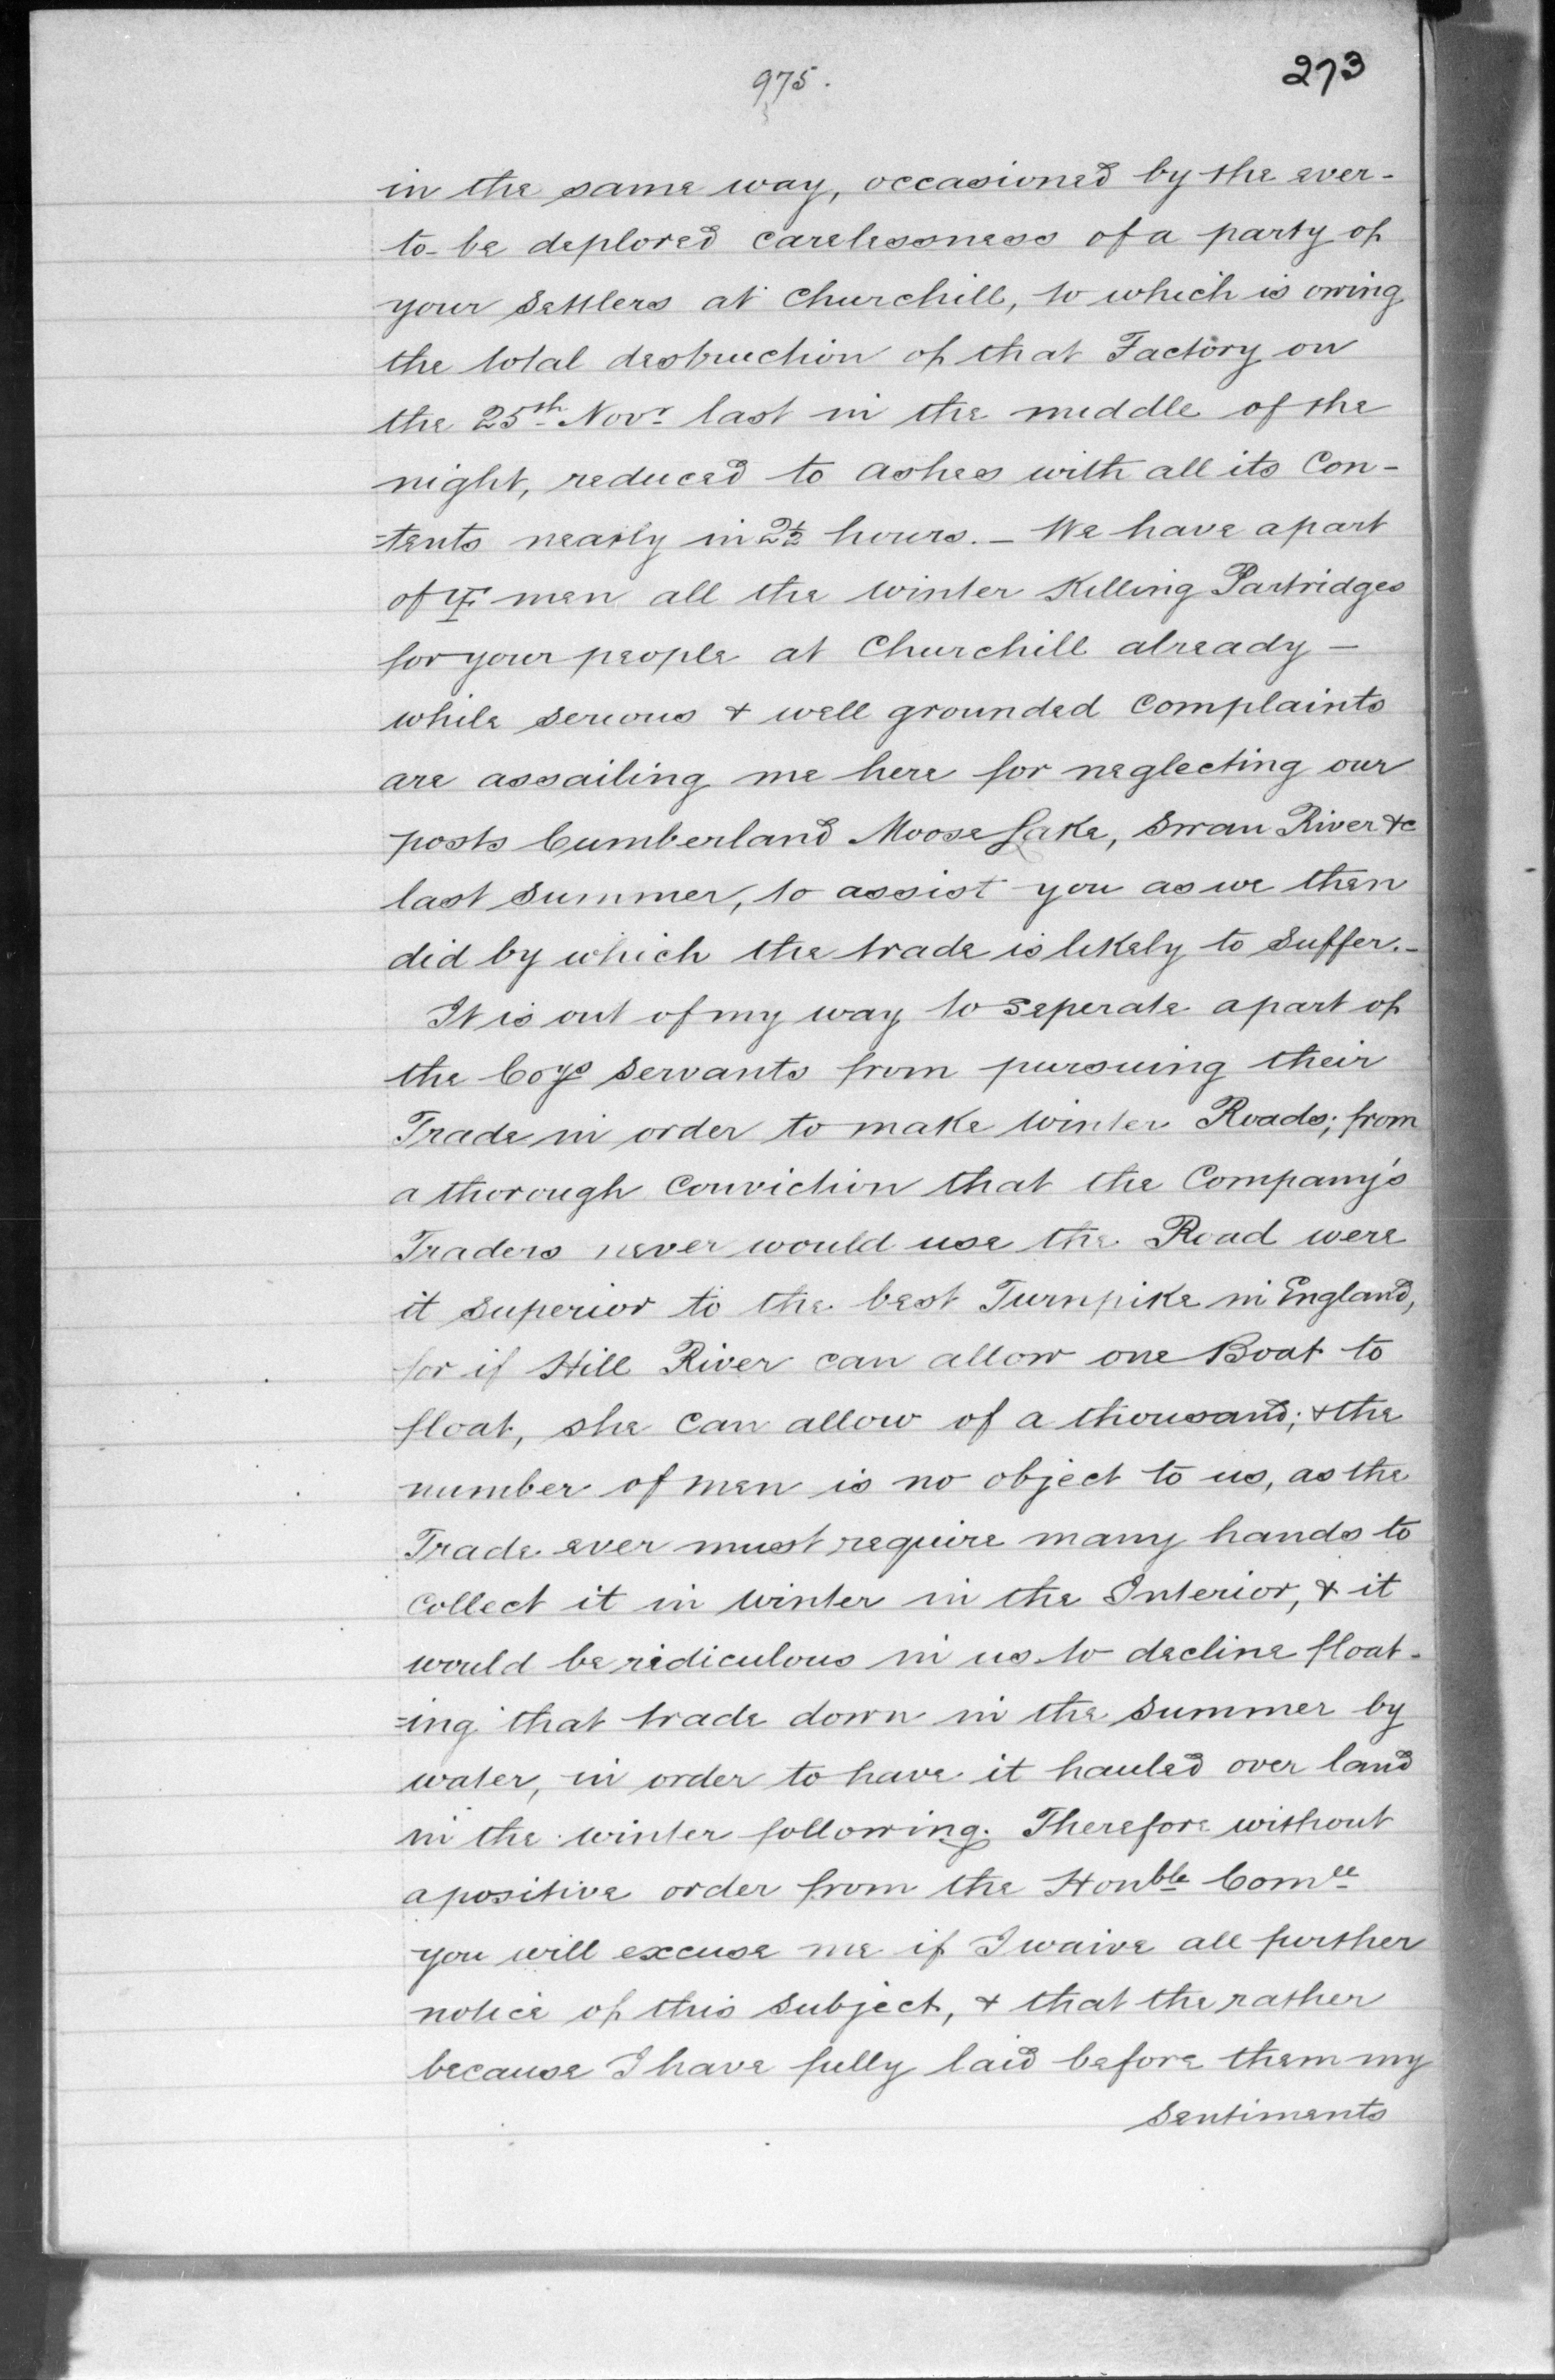 975.
273
in the same way, occasioned by the ever-
to-be deplored carelessness of a party of
your settlers at Churchill, to which is owing
the total destruction of that Factory on
the 25th Novr last in the middle of the
night, reduced to ashes with all its Con-
=tents nearly in 2½ hours. – We have apart
of men all the winter Killing Partridges
for your people at Churchill already –
while serious & well grounded Complaints
are assailing me here for neglecting our
posts Cumberland Moose Lake, Swan River &c
last summer, to assist you as we then
did by which the trade is likely to suffer. –
It is out of my way to seperate apart of
the Coys servants from pursuing their
Trade in order to make winter Roads; from
a thorough Conviction that the Company's
Traders never would use the Road were
it superior to the best Turnpike in England,
for if Hill River can allow one Boat to
float, she can allow of a thousand; & the
number of men is no object to us, as the
Trade ever must require many hands to
Collect it in winter in the Interior, & it
would be ridiculous in us to decline float-
=ing that trade down in the summer by
water, in order to have it hauled over land
in the winter following. Therefore without
a positive order from the Honble Comee
you will excuse me if I waive all further
notice of this subject, & that the rather
because I have fully laid before them my
sentiments